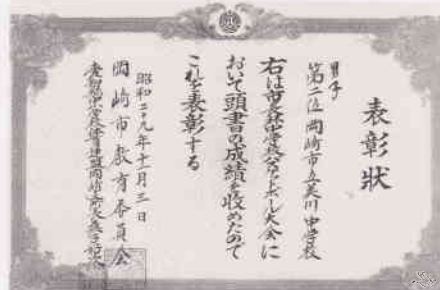 表彰状
男子
第二位 岡崎市立美川中学校
右は市民体中学校バレーボール大会に
おいて頭書の成績を収めたので
これを表彰する
昭和二十九年十一月三日
岡崎市教育委員会